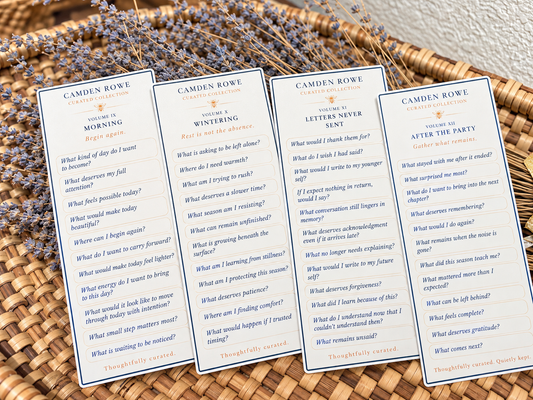 CAMDEN ROWE
CURATED COLLECTION
VOLUME IX
MORNING
Begin again.
What kind of day do I want
to become?
What deserves my full
attention?
What feels possible today?
What would make today
beautiful?
Where can I begin again?
What do I want to carry forward?
What would make today feel lighter?
What energy do I want to bring
to this day?
What would it look like to move
through today with intention?
What small step matters most?
What is waiting to be noticed?
Thoughtfully curated.
CAMDEN ROWE
CURATED COLLECTION
VOLUME X
WINTERING
Rest is not the absence.
What is asking to be left alone?
Where do I need warmth?
What am I trying to rush?
What deserves a slower time?
What season am I resisting?
What can remain unfinished?
What is growing beneath the
surface?
What am I learning from stillness?
What am I protecting this season?
What deserves patience?
Where am I finding comfort?
What would happen if I trusted
timing?
Thoughtfully curated.
CAMDEN ROWE
CURATED COLLECTION
VOLUME XI
LETTERS NEVER
SENT
What would I thank them for?
What do I wish I had said?
What would I write to my younger
self?
If I expect nothing in return,
would I say?
What conversation still lingers in
memory?
What deserves acknowledgment
even if it arrives late?
What no longer needs explaining?
What would I write to my future
self?
What deserves forgiveness?
What did I learn because of this?
What do I understand now that I
couldn't understand then?
What remains unsaid?
Thoughtfully curated.
CAMDEN ROWE
CURATED COLLECTION
VOLUME XII
AFTER THE PARTY
Gather what remains.
What stayed with me after it ended?
What surprised me most?
What do I want to bring into the next
chapter?
What deserves remembering?
What would I do again?
What remains when the noise is
gone?
What did this season teach me?
What mattered more than I
expected?
What can be left behind?
What feels complete?
What deserves gratitude?
What comes next?
Thoughtfully curated. Quietly kept.